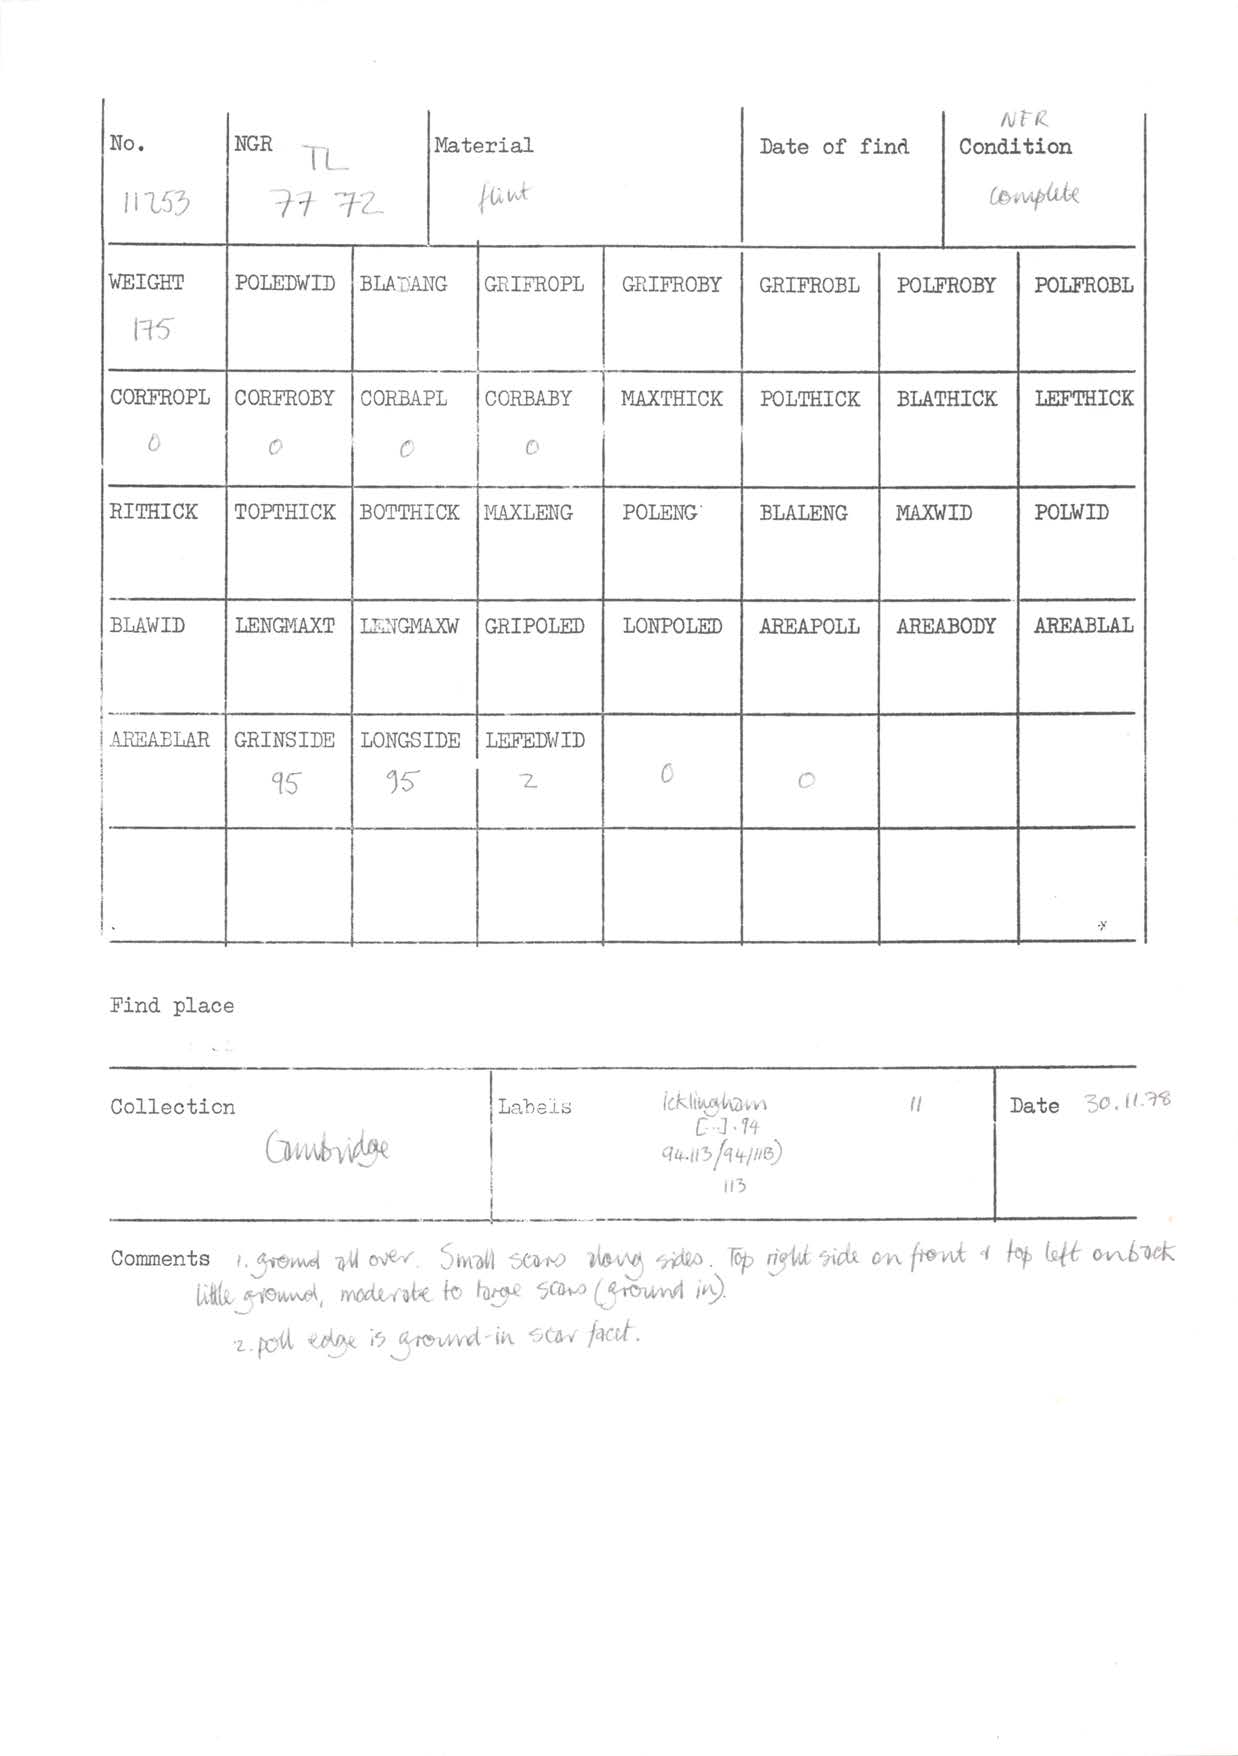 NFR
No. NGR Material Date of find Condition
TL
11253 77 72 flint complete
WEIGHT POLEDWID BLADANG GRIFROPL GRIFROBY GRIFROBL POLFROBY POLFROBL
175
CORFROPL CORFROBY CORBAPL CORBABY MAXTHICK POLTHICK BLATHICK LEFTHICK
0 0 0 0
RITHICK TOPTHICK BOTTHICK MAXLENG POLENG BLALENG MAXWID POLWID
BLAWID LENGMAXT LENGMAXW GRIPOLED LONPOLED AREAPOLL AREABODY AREABLAL
AREABLAR GRINSIDE LONGSIDE LEFEDWID
95 95 2 0 0
Find place
Collection Labels Icklingham 11 Date 30.11.78
[...].94
Cambridge 94.113/94/113)
113
Comments 1. ground all over. Small scars along sides. Top right side on front & top left on back
little ground, moderate to large scars (ground in).
2. poll edge is ground-in scar facet.